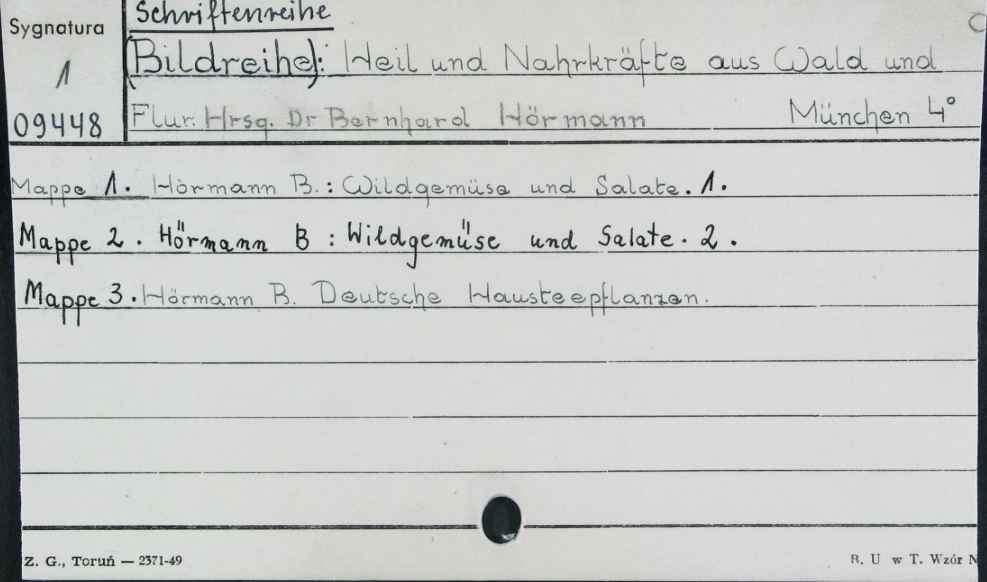 Schriftenreihe
Sygnatura
C
(Bildreihe): Heil und Nahrkräfte aus Wald und
1
Flur. Hrsg. Dr Bernhard Hörmann München 4°
09448
Mappe 1. Hörmann B.: Wildgemüse und Salate. 1.
Mappe 2. Hörmann B : Wildgemüse und Salate. 2.
Mappe 3. Hörmann B. Deutsche Hausteepflanzen.
Z. G., Toruń — 2371-49
B. U w T. Wzór N